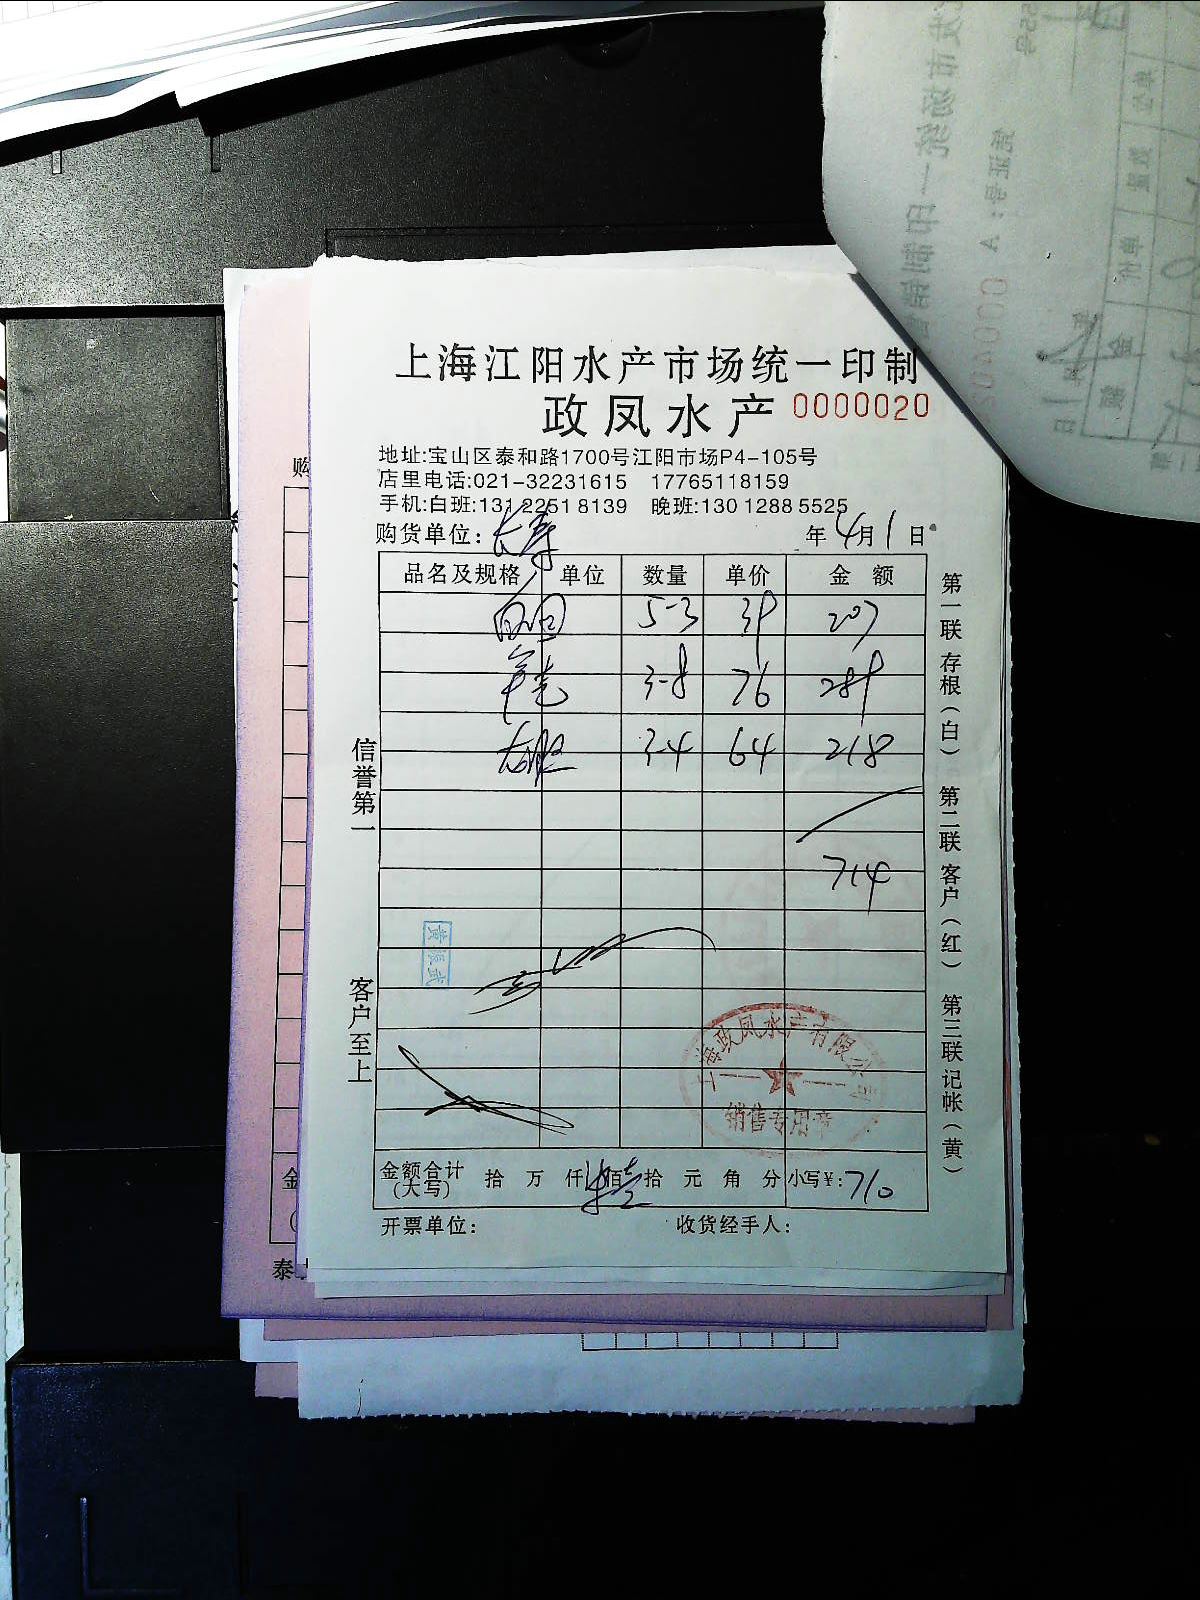 上海江阳水产市场统一印制
政凤水产 0000020
地址:宝山区泰和路1700号江阳市场P4-105号
店里电话:021-32231615 17765118159
手机:白班:131 2251 8139 晚班:130 1288 5525
购货单位:长寿 年4月1日
品名及规格 单位 数量 单价 金额
5-3 39 207
3-8 76 289
3-4 64 218
714
信誉第一
客户至上
第一联 存根(白) 第二联 客户(红) 第三联 记帐(黄)
黄振武
上海政凤水产有限公司
销售专用章
金额合计(大写) 拾 万 仟 佰 拾 元 角 分 小写¥:710
开票单位: 收货经手人:
购
金
泰